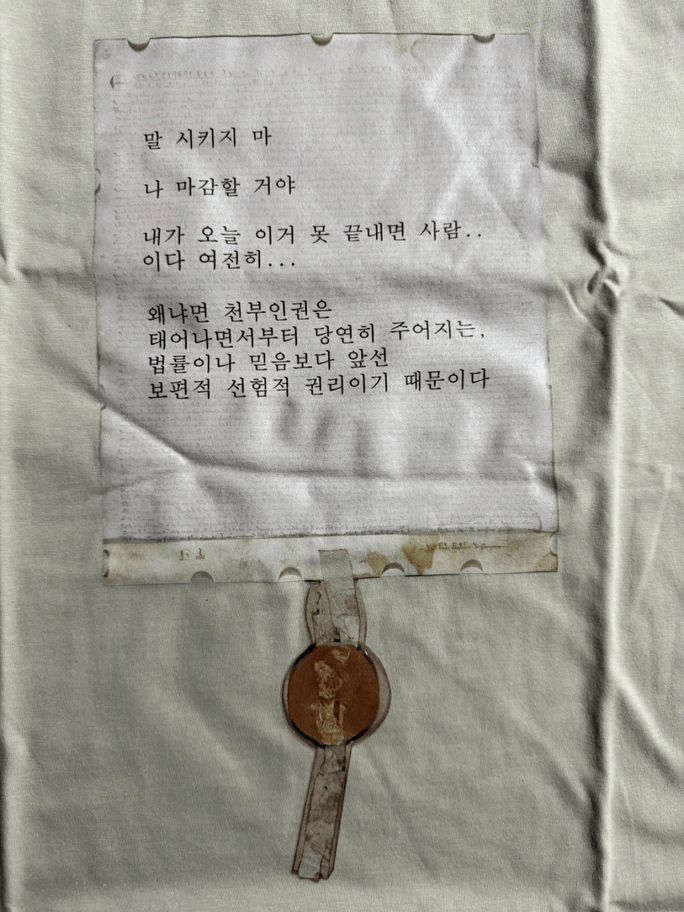 말 시키지 마
나 마감할 거야
내가 오늘 이거 못 끝내면 사람..
이다 여전히...
왜냐면 천부인권은
태어나면서부터 당연히 주어지는,
법률이나 믿음보다 앞선
보편적 선험적 권리이기 때문이다